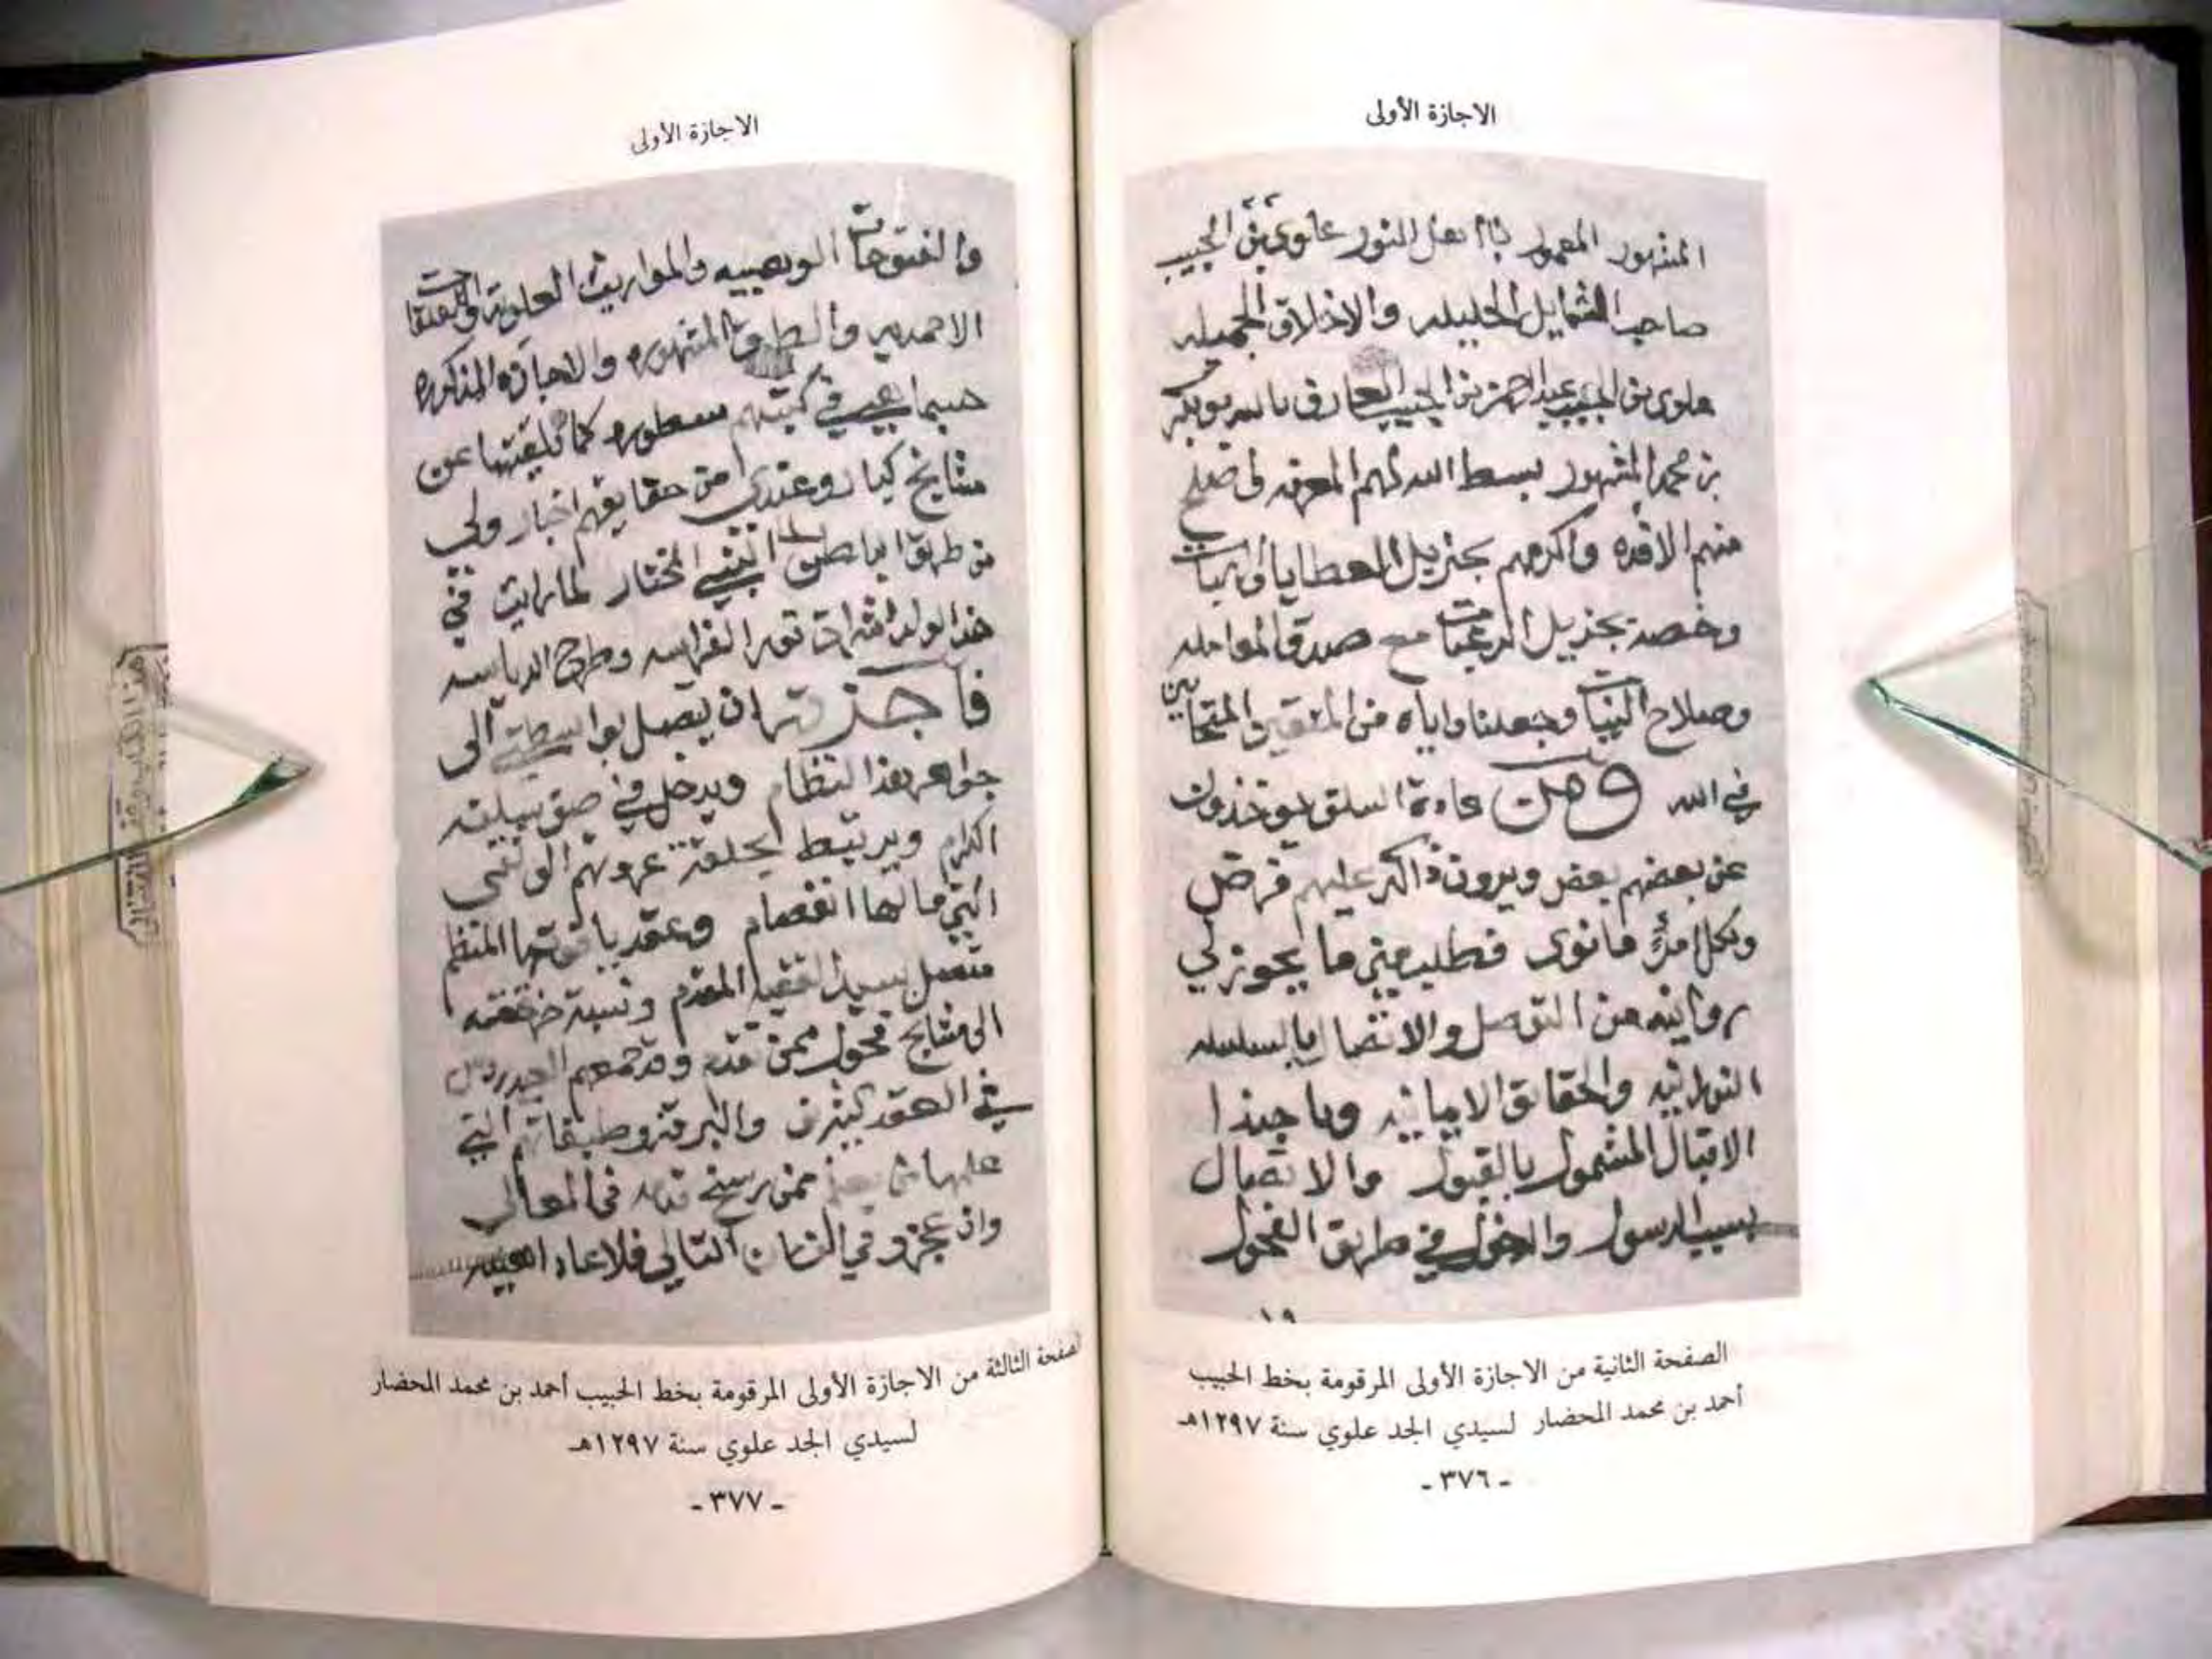 الاجازة الأولى
المشهور المعمور بأفعال النور علوي بن الحبيب
صاحب الشمايل الجليله والاخلاق الجميله
علوي بن الحبيب عبدالرحمن بن الحبيب العارف بالله بوبكر
بن محمد المشهور بسط الله لهم المعرفه في
منهم الافده واكرمهم بجزيل العطايا والهبات
وخصه بجزيل الرغبات مع صدق المعامله
وصلاح النيات وجعلنا واياه من المتقين والمتحابين
في الله ومن عادة السلف يوخذون
عن بعضهم بعض ويرون ذاك عليهم فرض
ولكل امرئ مانوى فطلب مني ما يجوز لي
روايته من التوصل والاتصال بالسلسله
النورانيه والحقائق الايمانيه وياحبذا
الاقبال المشمول بالقبول والاتصال
بسيد الرسول والدخول في طريق الفحول
الصفحة الثانية من الاجازة الأولى المرقومة بخط الحبيب
أحمد بن محمد المحضار لسيدي الجد علوي سنة ١٢٩٧هـ
- ٣٧٦ -
الاجازة الأولى
والفتوحات الوهبيه والمواريث العلويه
الاحمديه والطرق المشهوره والاجازه المذكوره
حسبما هي في كتبهم سطوره كما تلقيتها عن
مشايخ كبار وعندي من حقايقهم اخبار ولي
من طريق الباطن النبي المختار لما رايت في
هذا الولد اشارات نور الفراسه وطرح الرياسه
فأجزته ان يتصل بواسطتي الى
جواهر هذا النظام ويدخل في
الكرام ويرتبط بحلقة عروتهم الوثقى
التي مالها انفصام وعقد ياقوتها المنتظم
متصل بسيدنا الفقيه المقدم ونسبة خرقته
الى مشايخ فحول ممن
في العقد والبرقه وطبقاتهم التي
عليها ممن رسخ قدمه في المعالي
وان عجزو في الزمان التالي فلا عاد
الصفحة الثالثة من الاجازة الأولى المرقومة بخط الحبيب أحمد بن محمد المحضار
لسيدي الجد علوي سنة ١٢٩٧هـ
- ٣٧٧ -